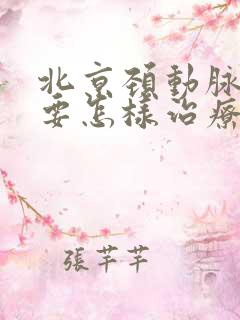 北京頚動脉
要怎樣治療
張芊芊